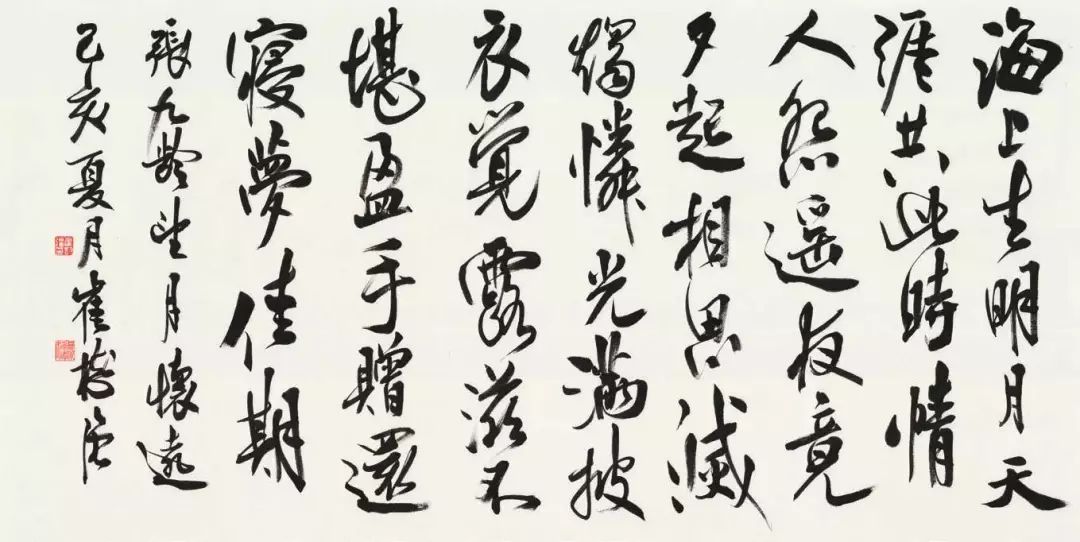 海上生明月天
涯共此時情
人怨遥夜竟
夕起相思滅
燭憐光滿披
衣覺露滋不
堪盈手贈還
寢夢佳期
張九齡望月懷遠
己亥夏月崔樹强